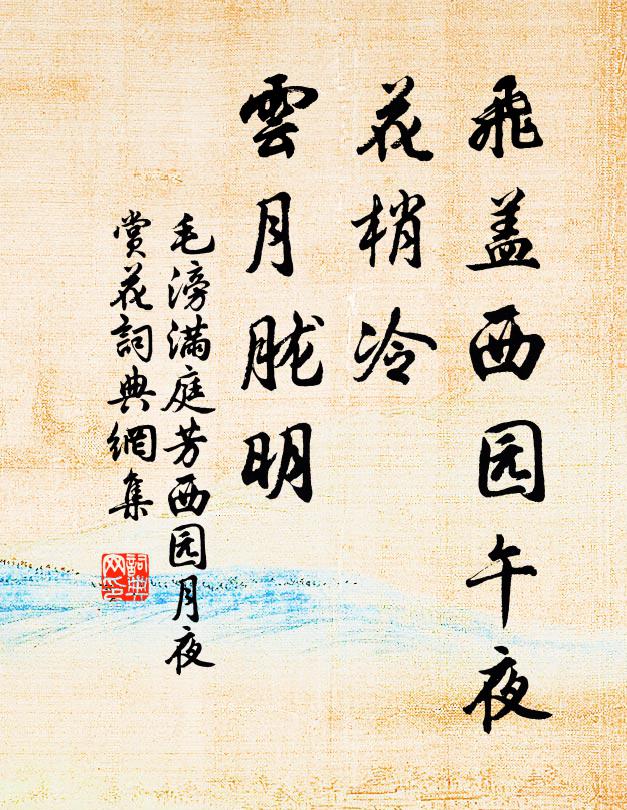 飛盖西园午夜
花梢冷
雲月胧明
毛滂满庭芳西园月夜
賞花詞典網集
詞典
网印